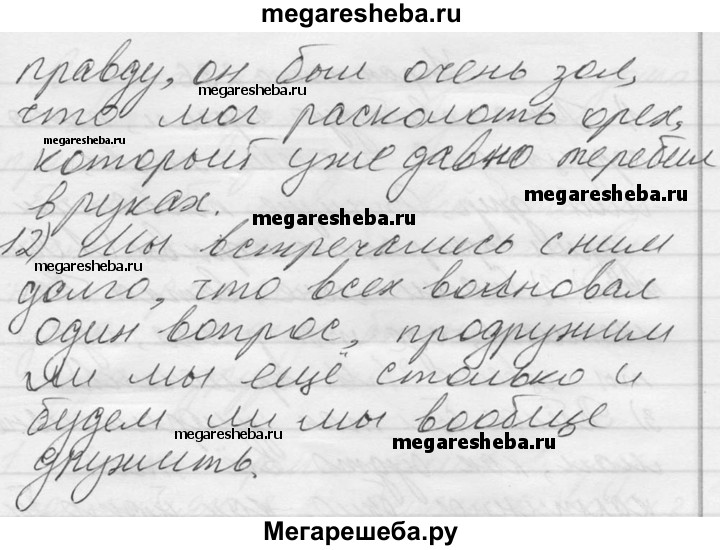 megaresheba.ru
правду, он был очень зол,
megaresheba.ru
что мог расколоть орех,
megaresheba.ru
который уже давно теребил
megaresheba.ru
в руках.
megaresheba.ru
12) Мы встречались с ним
megaresheba.ru
megaresheba.ru
долго, что всех волновал
один вопрос, продружим
ли мы ещё столько и
будем ли мы вообще
megaresheba.ru
megaresheba.ru
дружить.
Мегарешеба.ру